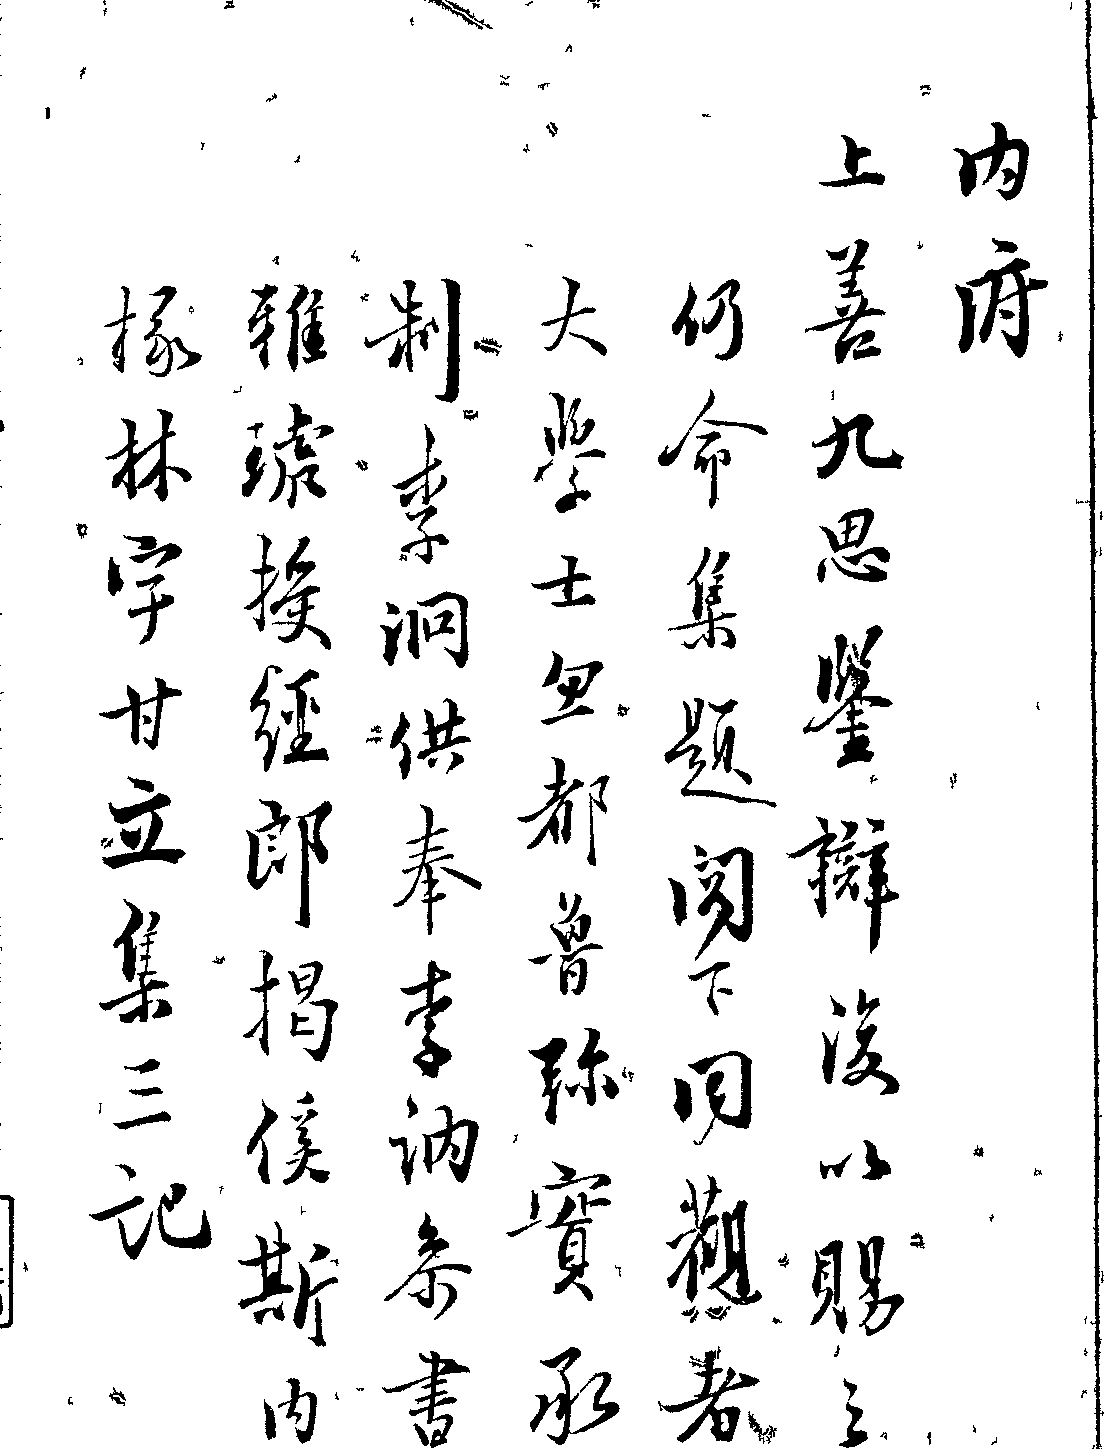 内府
上善九思鑒辯復以賜之
仍命集題閣下同觀者
大學士忽都魯弥實承
制李泂供奉李訥叅書
雅琥授經郎揭傒斯内
掾林宇甘立集三記